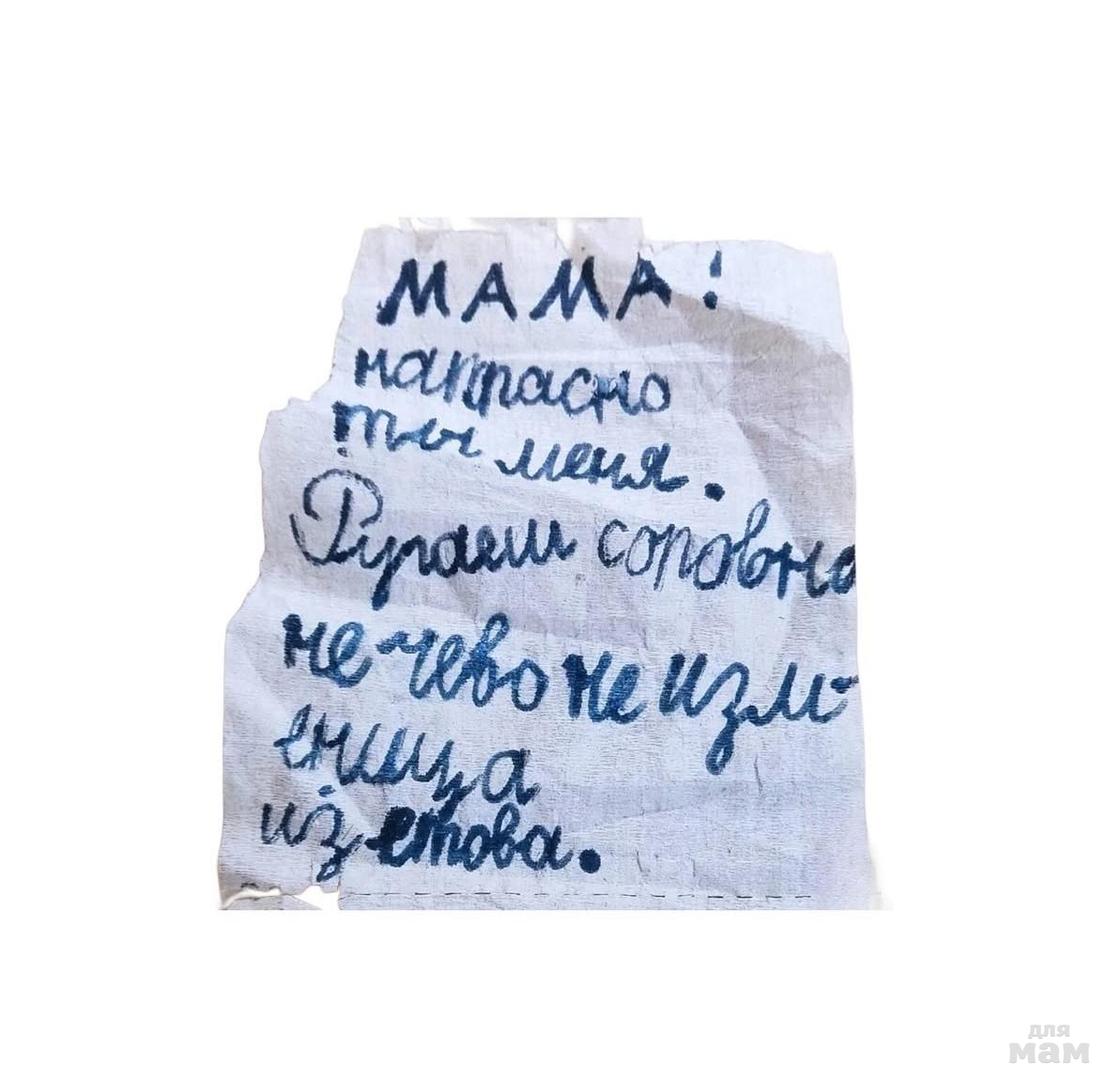 МАМА!
напрасно
ты меня.
Ругаеш соровно
не-чево не изм-
еница
из етова.
для
мам